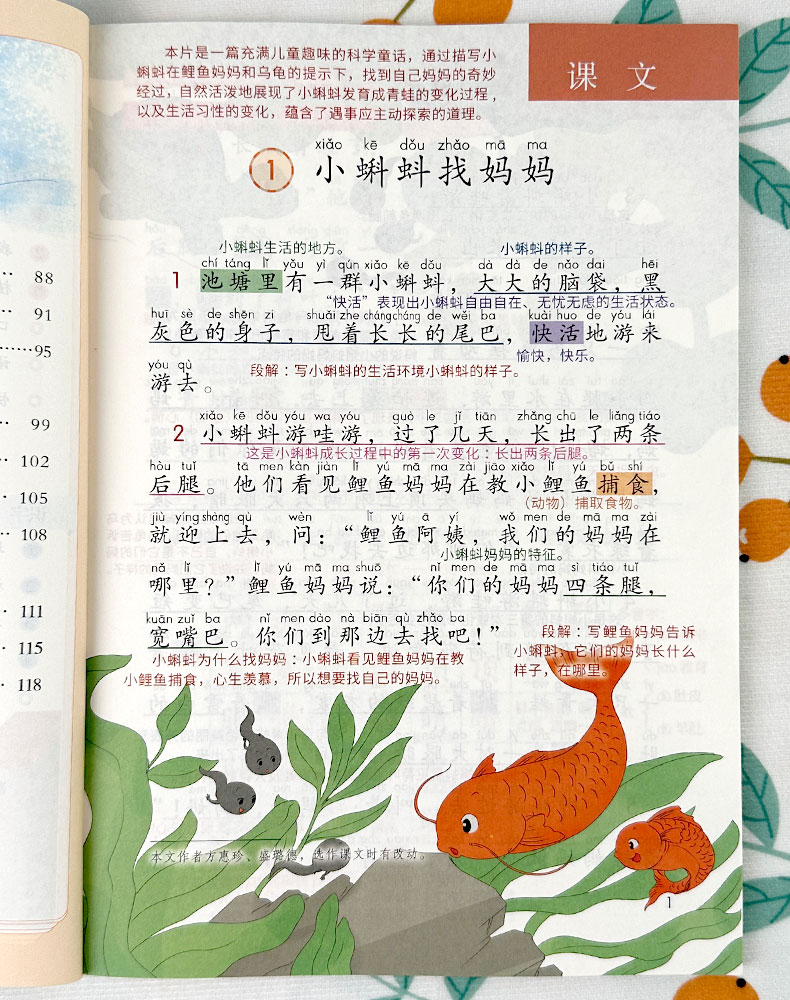 88
91
95
99
102
105
108
111
115
118
本片是一篇充满儿童趣味的科学童话，通过描写小
蝌蚪在鲤鱼妈妈和乌龟的提示下，找到自己妈妈的奇妙
经过，自然活泼地展现了小蝌蚪发育成青蛙的变化过程，
以及生活习性的变化，蕴含了遇事应主动探索的道理。
课 文
xiǎo kē dǒu zhǎo mā ma
1 小蝌蚪找妈妈
小蝌蚪生活的地方。 小蝌蚪的样子。
chí táng lǐ yǒu yì qún xiǎo kē dǒu dà dà de nǎo dai hēi
1 池塘里有一群小蝌蚪，大大的脑袋，黑
“快活”表现出小蝌蚪自由自在、无忧无虑的生活状态。
huī sè de shēn zi shuǎi zhe cháng cháng de wěi ba kuài huo de yóu lái
灰色的身子，甩着长长的尾巴，快活地游来
愉快，快乐。
yóu qù
游去。 段解：写小蝌蚪的生活环境小蝌蚪的样子。
xiǎo kē dǒu yóu wa yóu guò le jǐ tiān zhǎng chū le liǎng tiáo
2 小蝌蚪游哇游，过了几天，长出了两条
这是小蝌蚪成长过程中的第一次变化：长出两条后腿。
hòu tuǐ tā men kàn jiàn lǐ yú mā ma zài jiāo xiǎo lǐ yú bǔ shí
后腿。他们看见鲤鱼妈妈在教小鲤鱼捕食，
（动物）捕取食物。
jiù yíng shàng qù wèn lǐ yú ā yí wǒ men de mā ma zài
就迎上去，问：“鲤鱼阿姨，我们的妈妈在
小蝌蚪妈妈的特征。
nǎ lǐ lǐ yú mā ma shuō nǐ men de mā ma sì tiáo tuǐ
哪里？”鲤鱼妈妈说：“你们的妈妈四条腿，
kuān zuǐ ba nǐ men dào nà biān qù zhǎo ba
宽嘴巴。你们到那边去找吧！”
段解：写鲤鱼妈妈告诉
小蝌蚪，它们的妈妈长什么
样子，在哪里。
小蝌蚪为什么找妈妈：小蝌蚪看见鲤鱼妈妈在教
小鲤鱼捕食，心生羡慕，所以想要找自己的妈妈。
本文作者方惠珍、盛璐德，选作课文时有改动。
1